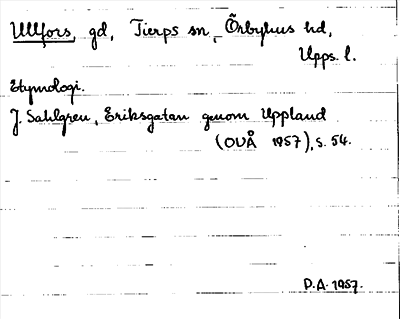 Ullfors, gd, Tierps sn, Örbyhus hd,
Upps. l.
Etymologi.
J. Sahlgren, Eriksgatan genom Uppland
(OUÅ 1957), s. 54.
D.A. 1957.